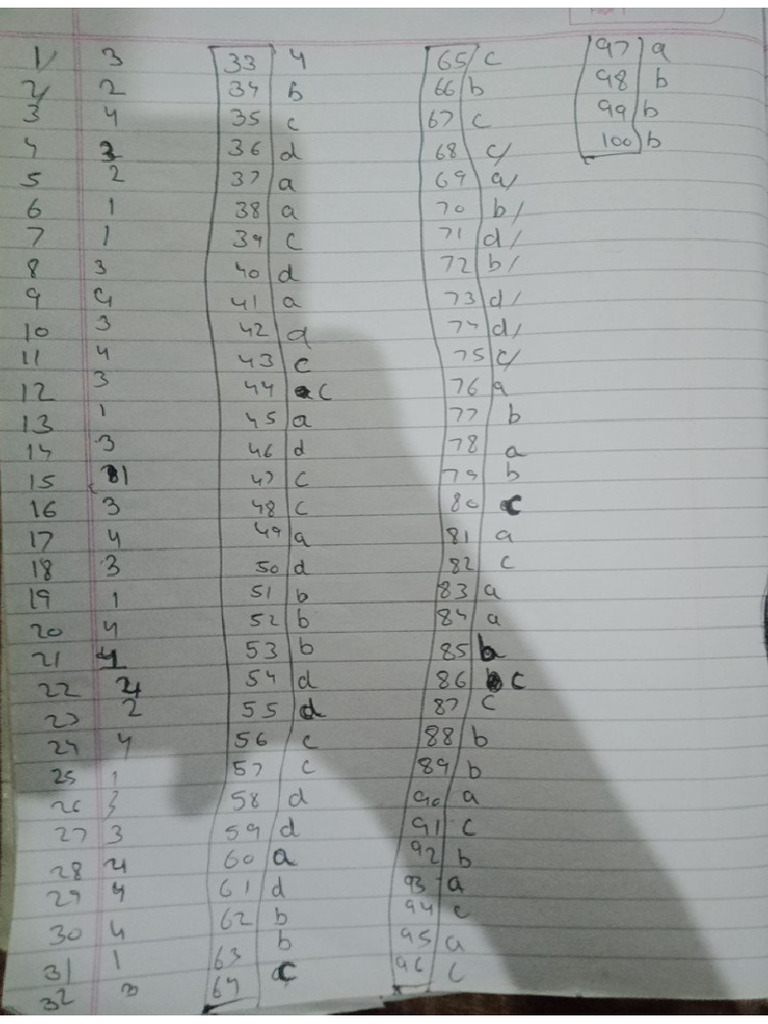 1/ 3
2/ 2
3 4
4 3
5 2
6 1
7 1
8 3
9 4
10 3
11 4
12 3
13 1
14 3
15 1
16 3
17 4
18 3
19 1
20 4
21 4
22 4
23 2
24 4
25 1
26 3
27 3
28 4
29 4
30 4
31 1
32 3
33 4
34 b
35 c
36 d
37 a
38 a
39 c
40 d
41 a
42 d
43 c
44 c
45 a
46 d
47 c
48 c
49 a
50 d
51 b
52 b
53 b
54 d
55 d
56 c
57 c
58 d
59 d
60 a
61 d
62 b
63 b
64 c
65 c
66 b
67 c
68 c/
69 a/
70 b/
71 d/
72 b/
73 d/
74 d/
75 c/
76 a
77 b
78 a
79 b
80 c
81 a
82 c
83 a
84 a
85 b
86 c
87 c
88 b
89 b
90 a
91 c
92 b
93 a
94 c
95 a
96 c
97 a
98 b
99 b
100 b